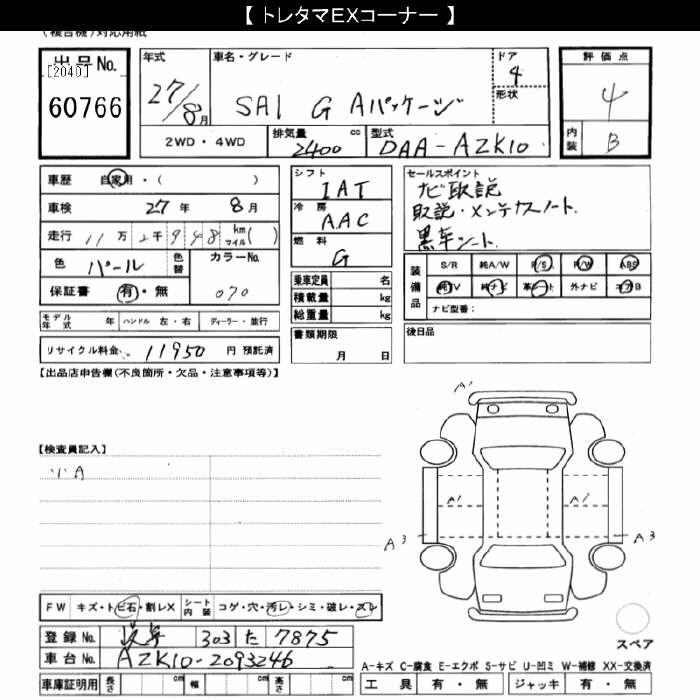 【 トレタマEXコーナー 】
(複合機)対応用紙
出品No. [2040] 60766
年式 27/8月
車名・グレード SAI G Aパッケージ
ドア 4
形状
評価点 4
内装 B
2WD・4WD
排気量 2400 cc
型式 DAA-AZK10
車歴 自家用・( )
車検 27年 8月
走行 11万2千948 km マイル( )
色 パール 色替 カラーNo. 070
保証書 有・無
シフト IAT
冷房 AAC
燃料 G
乗車定員 名
積載量 kg
総重量 kg
セールスポイント
ナビ取説
取説・メンテナスノート.
黒革シート.
装備品 S/R 純A/W P/S P/W ABS
純TV 純ナビ 革シート 外ナビ エアB
ナビ型番:
モデル年式 年 ハンドル 左・右 ディーラー・並行
リサイクル料金 11950 円 預託済
書類期限 月 日
後日品
【出品店申告欄(不良箇所・欠品・注意事項等)】
【検査員記入】
小A
A'
A' A'
A3 A3
FW キズ・トビ石・割レX シート内装 コゲ・穴・汚レ・シミ・破レ・スレ
登録No. 岐阜 303 た 7875
車台No. AZK10-2093246
車庫証明用 長さ cm 幅 cm 高さ cm
スペア
A-キズ C-腐食 E-エクボ S-サビ U-凹ミ W-補修 XX-交換済
工具 有・無 ジャッキ 有・無